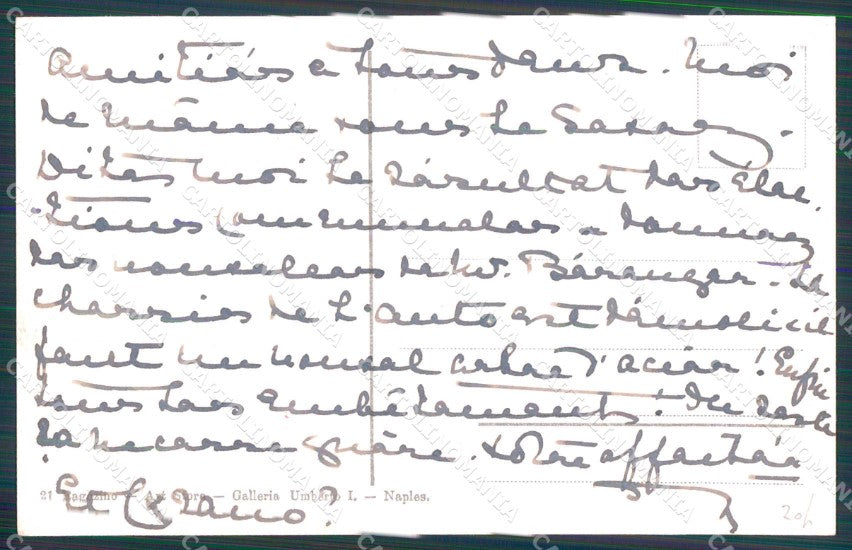 Amitiés à tous deux. Moi
de même vous le savez.
Dites moi le résultat des élec-
-tions communales - donnez
des nouvelles de M. Béranger. Le
chassis de l'auto est démoli il
faut un nouvel arbre d'acier! Enfin
tous les embêtements! Du reste
guère. votre affectée
21 Ragozino — Art Store — Galleria Umberto I. — Naples.
Et Cyrano?
206
CARTOLINOMANIA